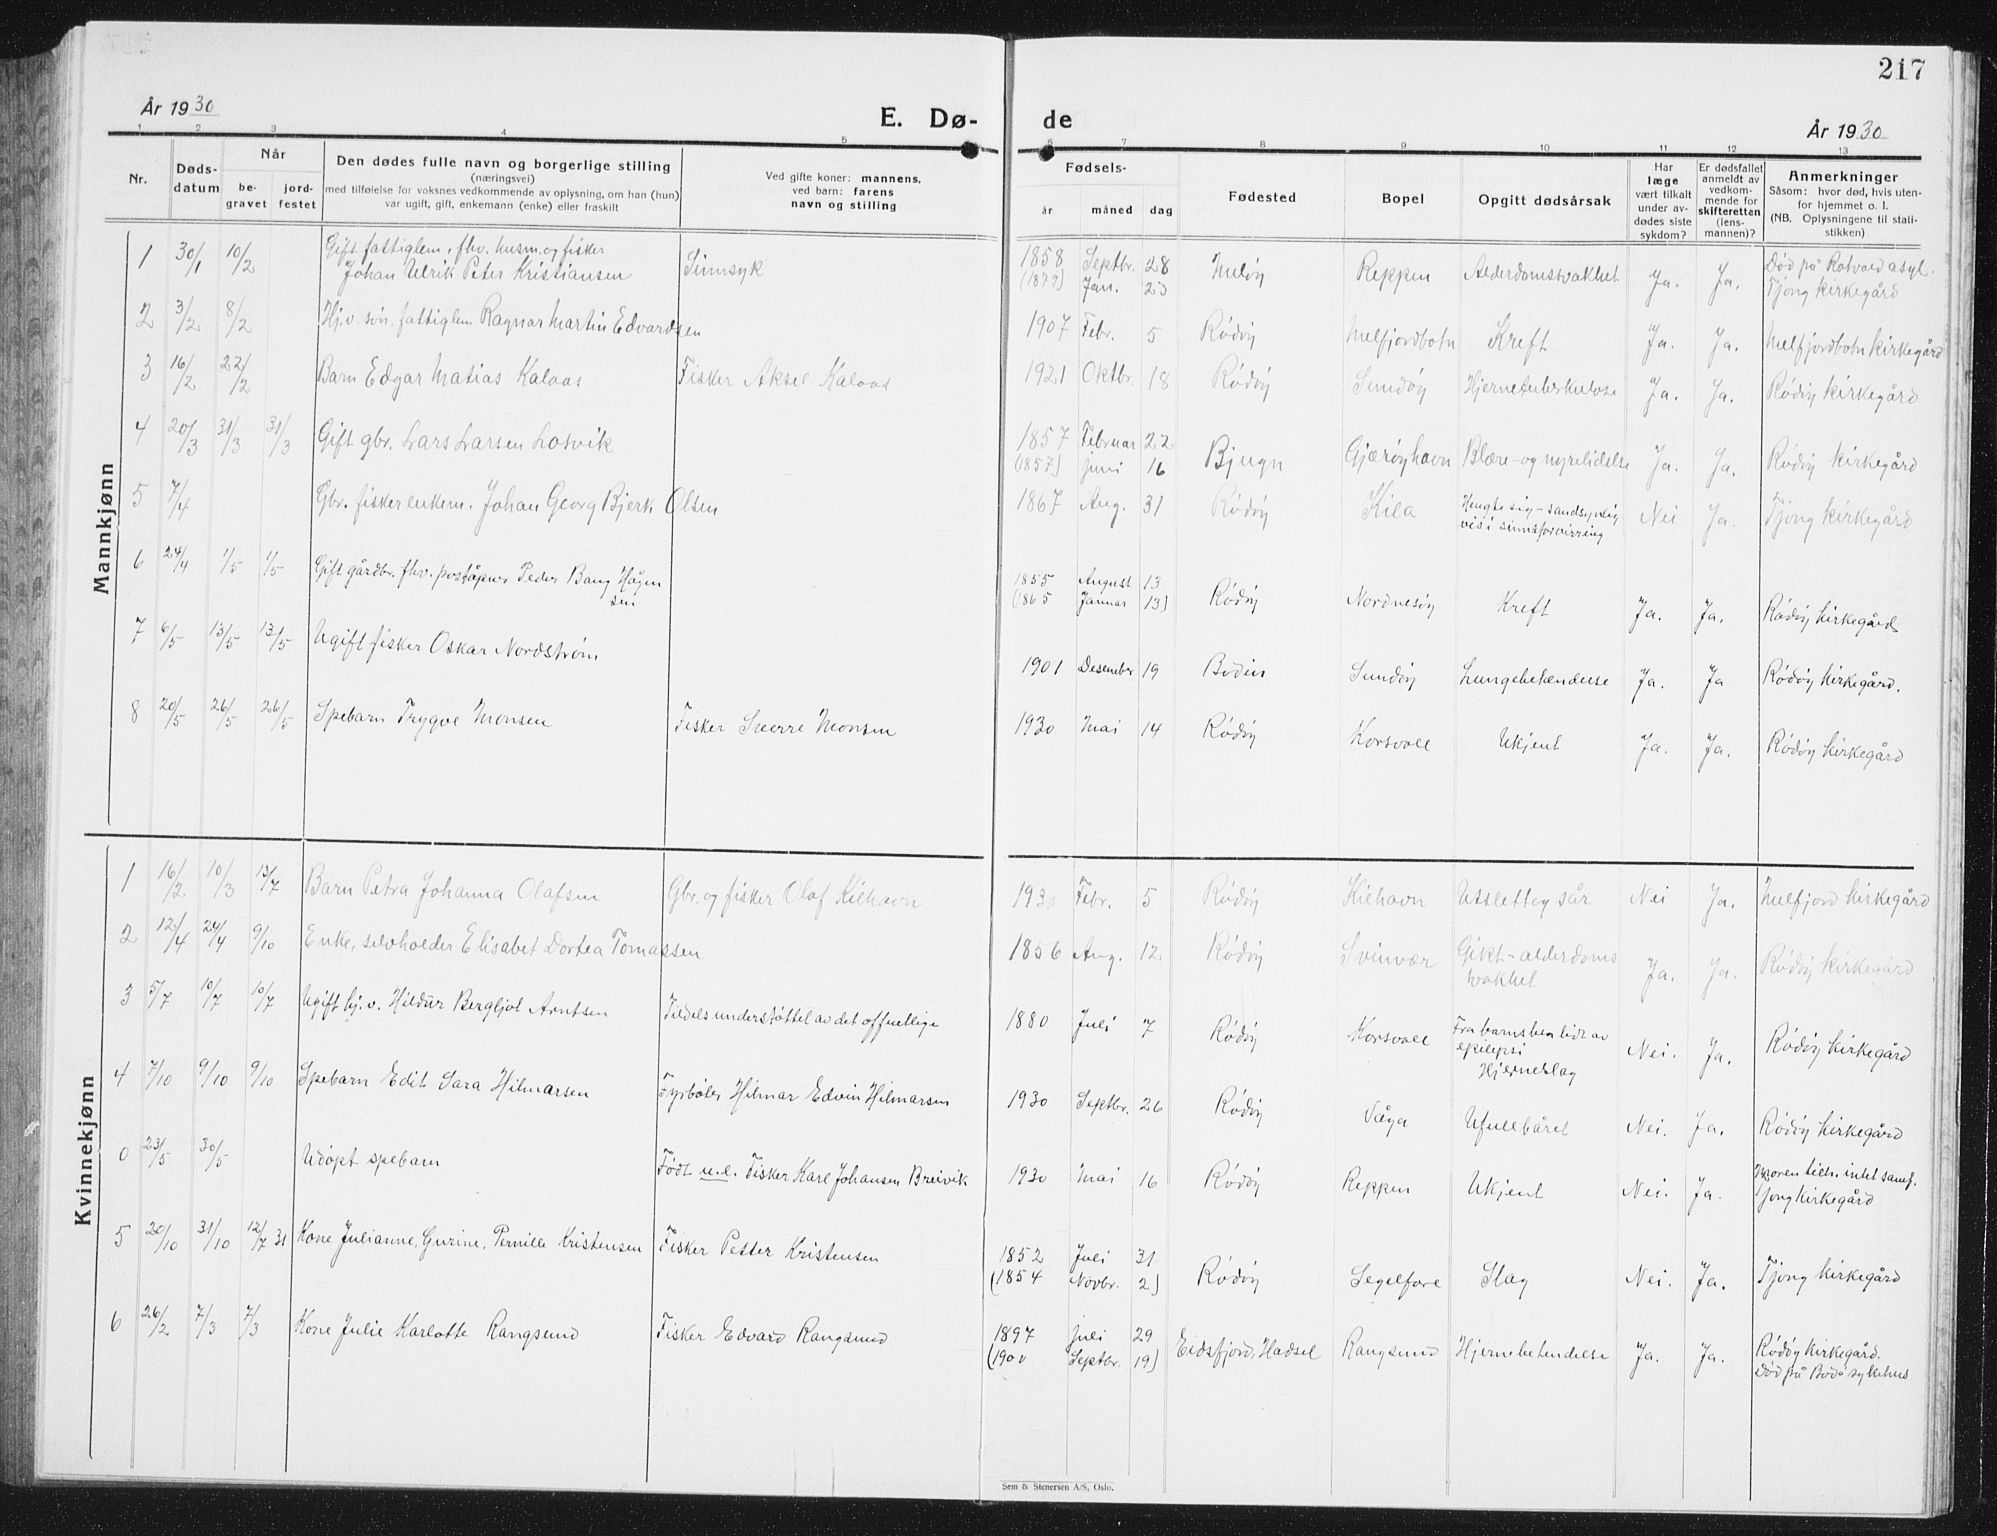 217
År 1930
E. Dø-
de
År 1930
1 2 3 4 5 6 7 8 9 10 11 12 13
Nr.
Døds-
datum
Når
be-
gravet
jord-
festet
Den dødes fulle navn og borgerlige stilling
(næringsvei)
med tilføielse for voksnes vedkommende av oplysning, om han (hun)
var ugift, gift, enkemann (enke) eller fraskilt
Ved gifte koner: mannens,
ved barn: farens
navn og stilling
Fødsels-
år
måned
dag
Fødested
Bopel
Opgitt dødsårsak
Har
læge
vært tilkalt
under av-
dødes siste
sykdom?
Er dødsfallet
anmeldt av
vedkom-
mende for
skifteretten
(lens-
mannen)?
Anmerkninger
Såsom: hvor død, hvis uten-
for hjemmet o. l.
(NB. Oplysningene til stati-
stikken)
Mannkjønn
1 30/1 10/2 Gift fattiglem, fhv. husm. og fisker
Johan Ulrik Peter Kristiansen Sinnsyk 1858 Septbr. 28 Meløy Reppen Alderdomsvakhet Ja. Ja. Død på Rotvold asyl.
(1879) Jan. 23 Tjong kirkegård
2 3/2 8/2 Hj.v. søn, fattiglem Ragnar Martin Edvardsen 1907 Febr. 5 Rødøy Melfjordbotn Kreft Ja. Ja. Melfjordbotn kirkegård
3 16/2 22/2 Barn Edgar Matias Kalaas Fisker Aksel Kalaas 1921 Oktbr. 18 Rødøy Sundøy Hjernetuberkulose Ja. Ja. Rødøy kirkegård
4 20/3 31/3 31/3 Gift gbr. Lars Larsen Losvik 1857 Februar 22 Bjugn Gjærøyhavn Blære- og nyrelidelse Ja. Ja. Rødøy kirkegård
(1857) juni 16
5 7/4 Gbr. fisker enkem. Johan Georg Bjerk Olsen 1867 Aug. 31 Rødøy Kila Hengte sig - sandsynlig
vis i sinnsforvirring Nei Ja. Tjong kirkegård
6 24/4 1/5 1/5 Gift gårdbr. fhv. poståpner Peder Bang Hågen
sen 1855 August 13 Rødøy Nordnesøy Kreft Ja. Ja. Rødøy kirkegård
(1865 Januar 13)
7 6/5 13/5 13/5 Ugift fisker Oskar Nordstrøm 1901 Desember 19 Bodin Sundøy Lungebetendelse Ja. Ja Rødøy kirkegård.
8 20/5 26/5 26/5 Spebarn Trygve Monsen Fisker Sverre Monsen 1930 Mai 14 Rødøy Korsvoll Ukjent Ja. Ja. Rødøy kirkegård
Kvinnekjønn
1 16/2 10/3 13/7 Barn Petra Johanna Olafsen Gbr. og fisker Olaf Kilhavn 1930 Febr. 5 Rødøy Kilhavn Utslett og sår Nei Ja. Melfjord kirkegård
2 12/4 24/4 9/10 Enke, selvholder Elisabet Dortea Tomassen 1856 Aug. 12 Rødøy Svinvær Gikt - alderdoms
vakhet Ja. Ja. Rødøy kirkegård
3 5/7 10/7 10/7 Ugift hj.v. Hildur Bergljot Arntsen Tildels understøttet av det offentlige 1880 Juli 7 Rødøy Korsvoll Fra barnsben lidt av
epilepsi
Hjerneslag Nei. Ja. Rødøy kirkegård
4 7/10 9/10 9/10 Spebarn Edit Sara Hilmarsen Fyrbøter Hilmar Edvin Hilmarsen 1930 Septbr. 26 Rødøy Våga Ufullbåret Nei. Ja. Rødøy kirkegård
0 23/5 30/5 Udøpt spebarn Født u.e. Fisker Karl Johansen Breivik 1930 Mai 16 Rødøy Reppen Ukjent Nei. Ja. Moren tilh. intet samf.
Tjong kirkegård
5 20/10 31/10 12/7 31 Kone Julianne, Gurine, Pernille Kristensen Fisker Petter Kristensen 1852 Juli 31 Rødøy Segelfore Slag Nei. Ja. Tjong kirkegård
(1854 Novbr. 2)
6 26/2 7/3 7/3 Kone Julie Karlotte Rangsund Fisker Edvard Rangsund 1897 juli 29 Eidsfjord, Hadsel Rangsund Hjernebetendelse Ja. Ja. Rødøy kirkegård.
(1900 Septbr. 19) Død på Bodø sykehus
Sem & Stenersen A/S, Oslo.